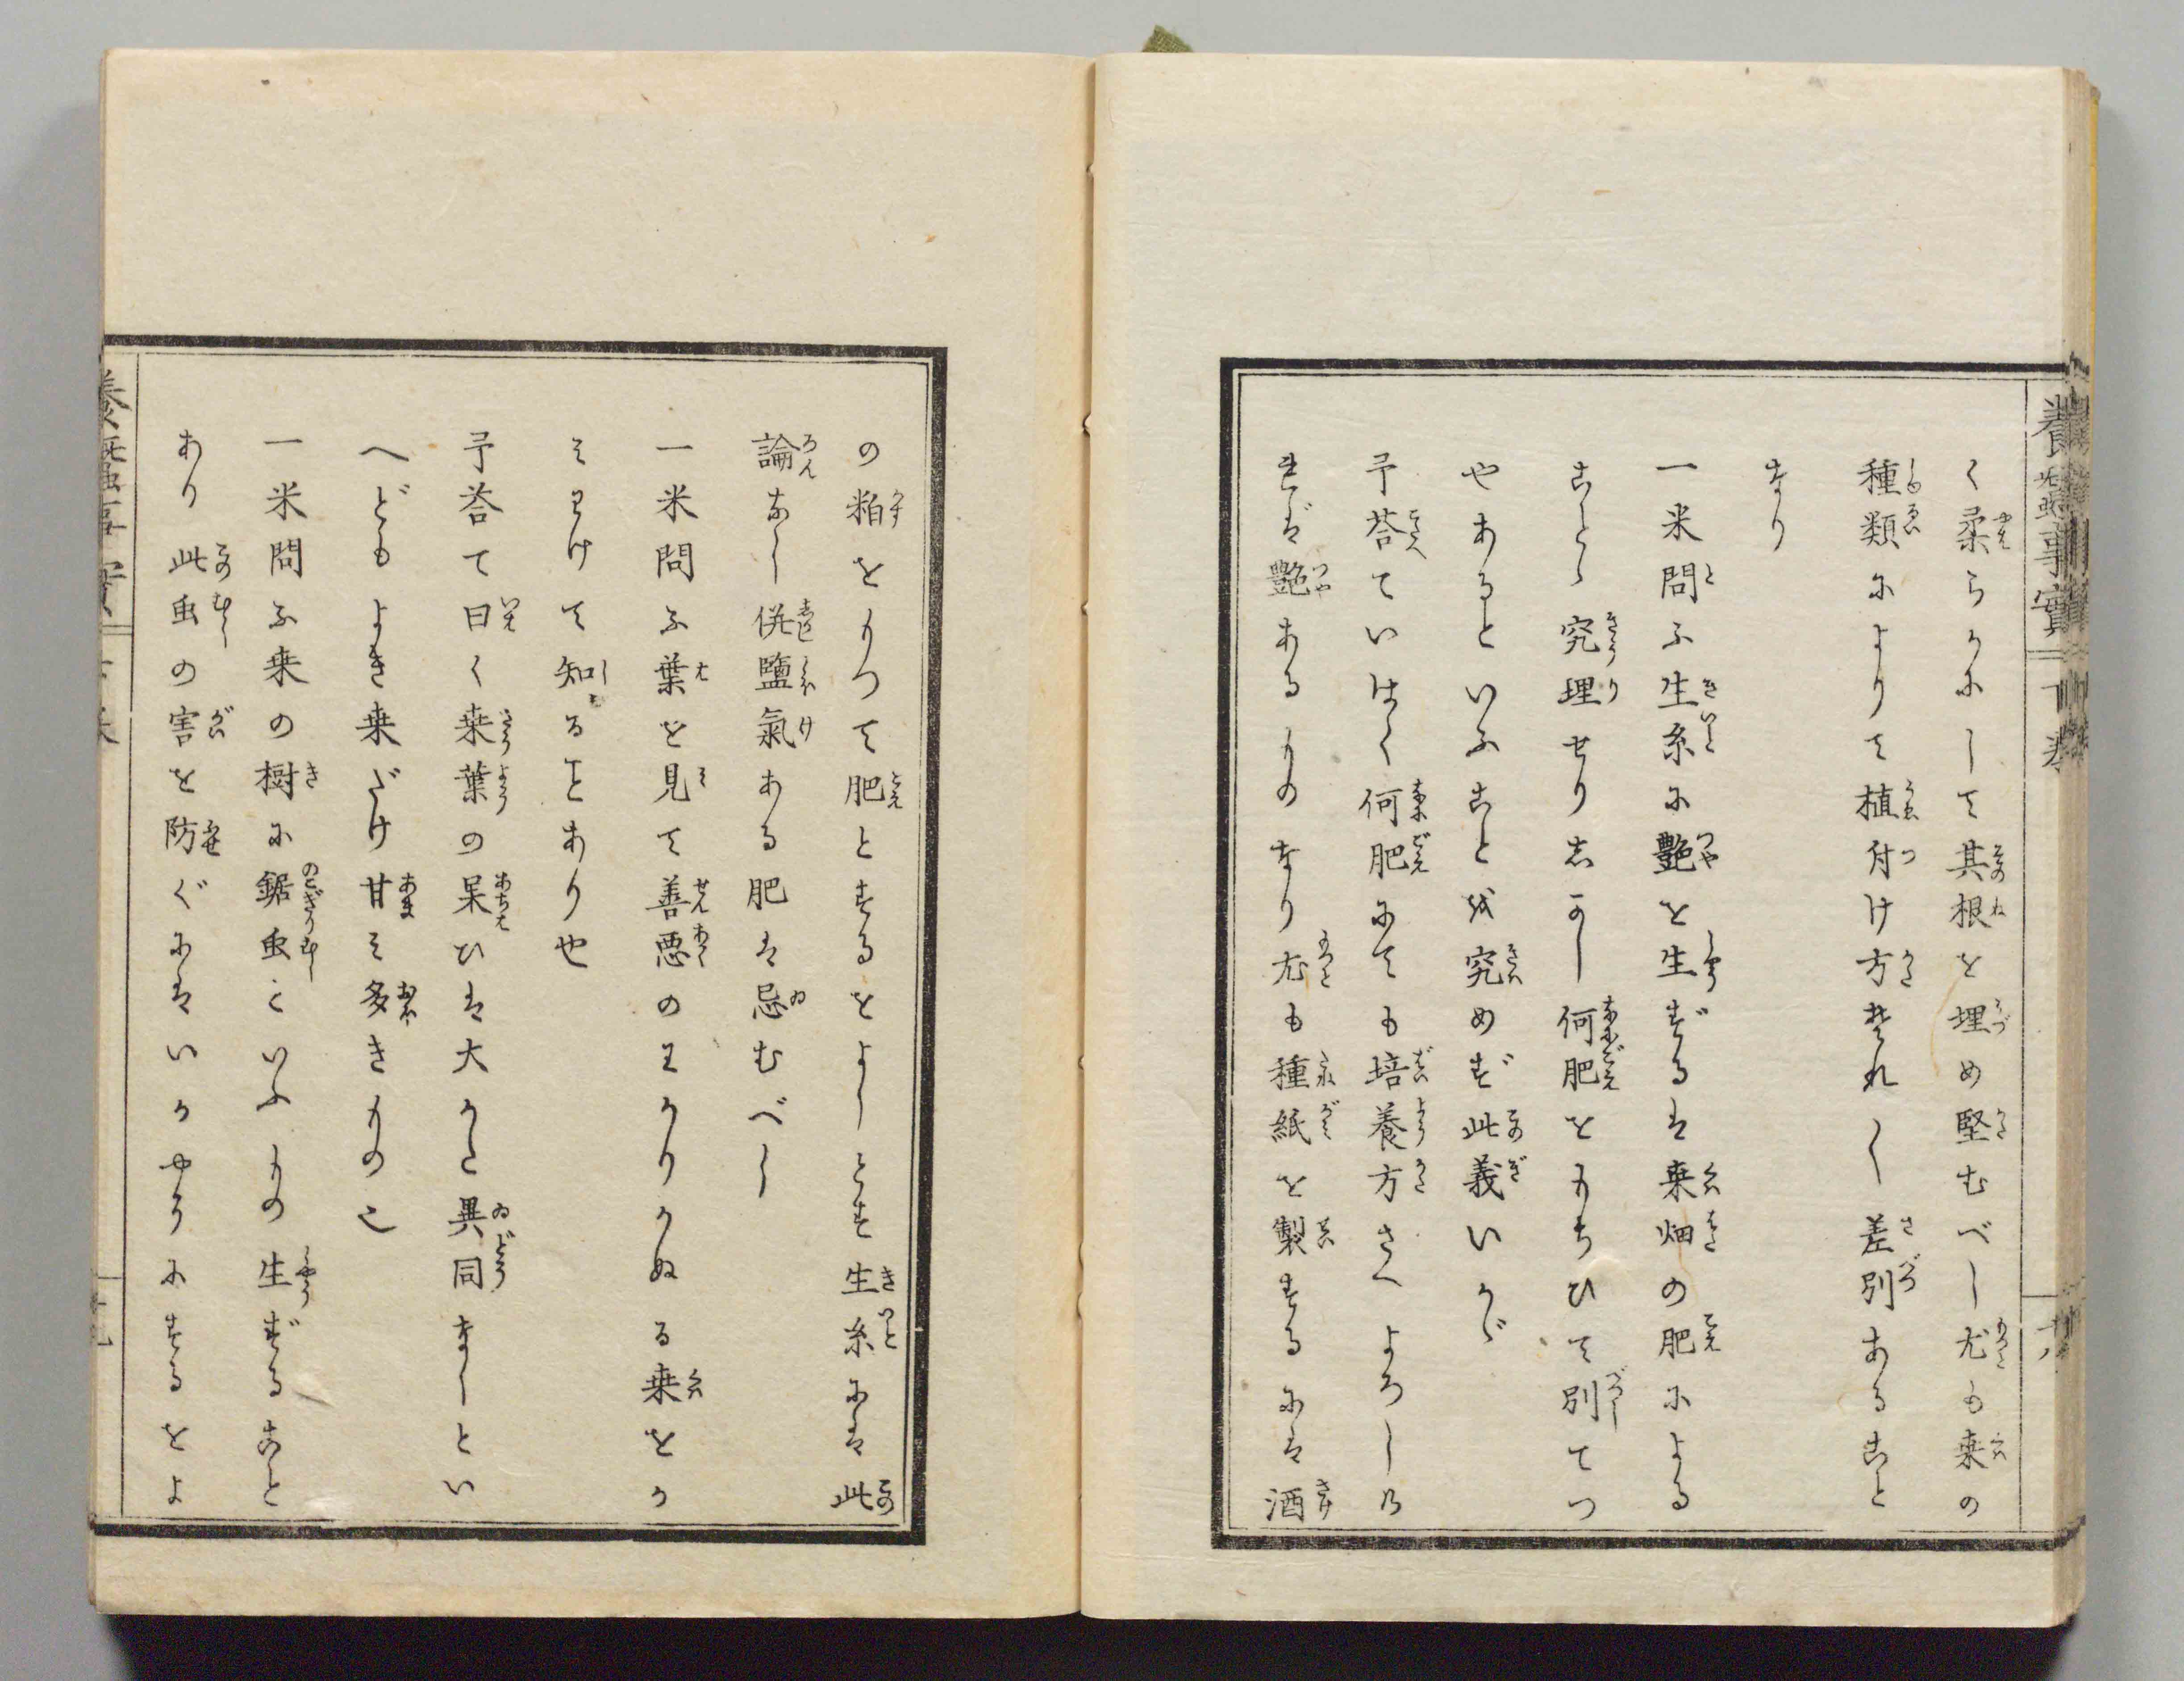 養蚕事實 下巻
く柔らかにして其根を埋め堅むべし尤も桒の
種類によりて植付け方夫れ〱差別あること
なり
一米問ふ生糸に艶を生ずるは桒畑の肥による
ことゝ究理せり志かし何肥をもちひて別てつ
やあるといふことを究めず此義いかゞ
予荅ていはく何肥にても培養方さへよろしけ
れば艶あるものなり尤も種紙を製するには酒
の粕をもつて肥とするをよしとす生糸には此
論なし併鹽氣ある肥は忌むべし
一米問ふ葉を見て善悪のわかりかぬる桒をか
みわけて知ることありや
予荅て曰く桒葉の味ひは大かた異同なしとい
へどもよき桒だけ甘み多きもの也
一米問ふ桒の樹に鋸虫といふもの生ずること
あり此虫の害を防ぐにはいかやうにするをよ